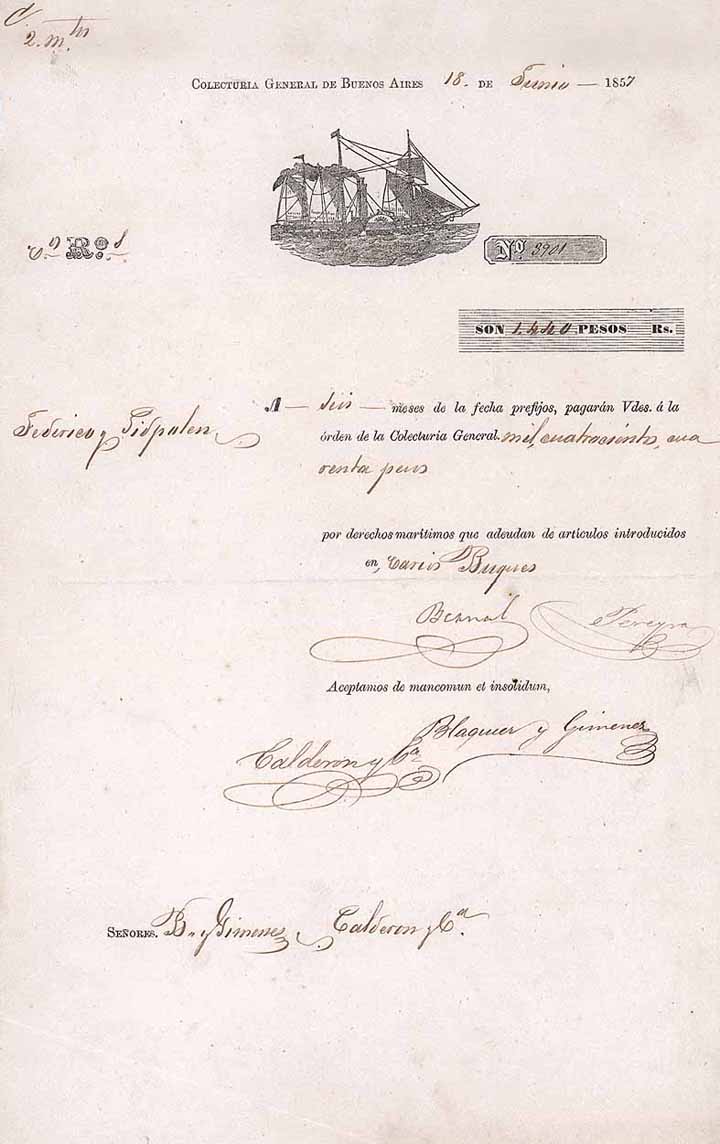 2. m.
COLECTURIA GENERAL DE BUENOS AIRES 18. DE Junio — 1857
R.º
Nº 3901
SON 1.440 PESOS Rs.
A — seis — meses de la fecha prefijos, pagarán Vdes. á la
Federico y
órden de la Colecturia General. mil, cuatrocientos, cua
renta pesos
por derechos marítimos que adeudan de artículos introducidos
en, varios Buques
Bernal Pereyra
Aceptamos de mancomun et insolidum,
Blaquier y Gimenez
Calderon y Cª
SEÑORES. B. y Gimenez, Calderon y Cª.